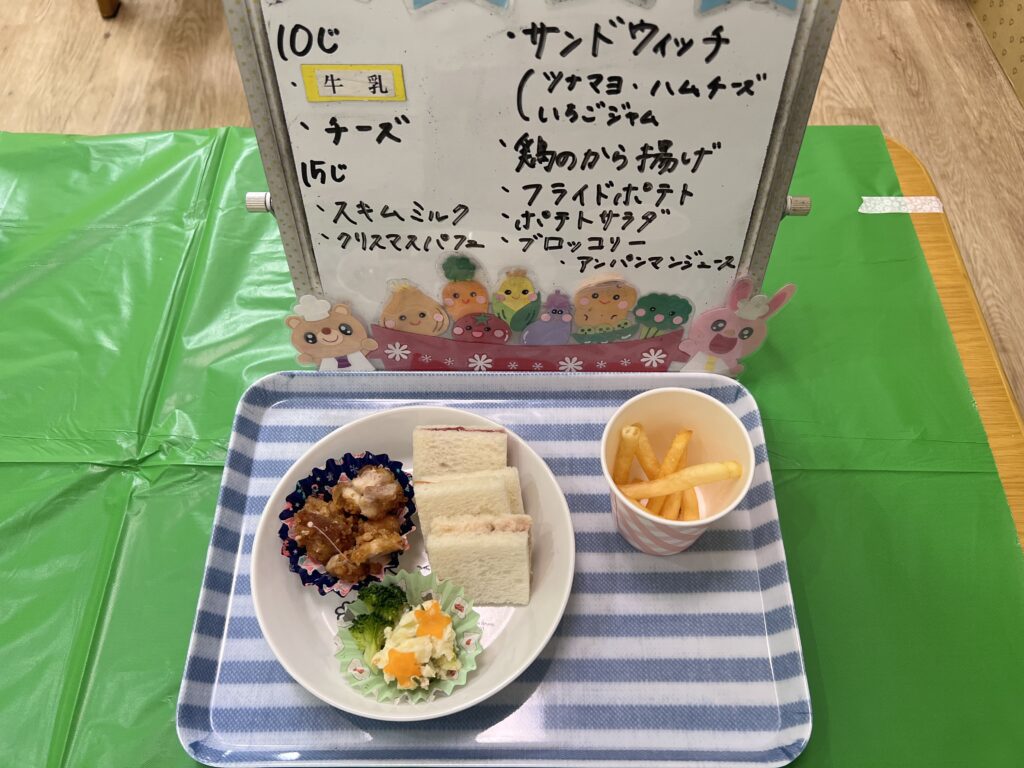 10じ
・牛乳
・チーズ
15じ
・スキムミルク
・クリスマスパフェ
・サンドウィッチ
(ツナマヨ・ハムチーズ
いちごジャム
・鶏のから揚げ
・フライドポテト
・ポテトサラダ
・ブロッコリー
・アンパンマンジュース